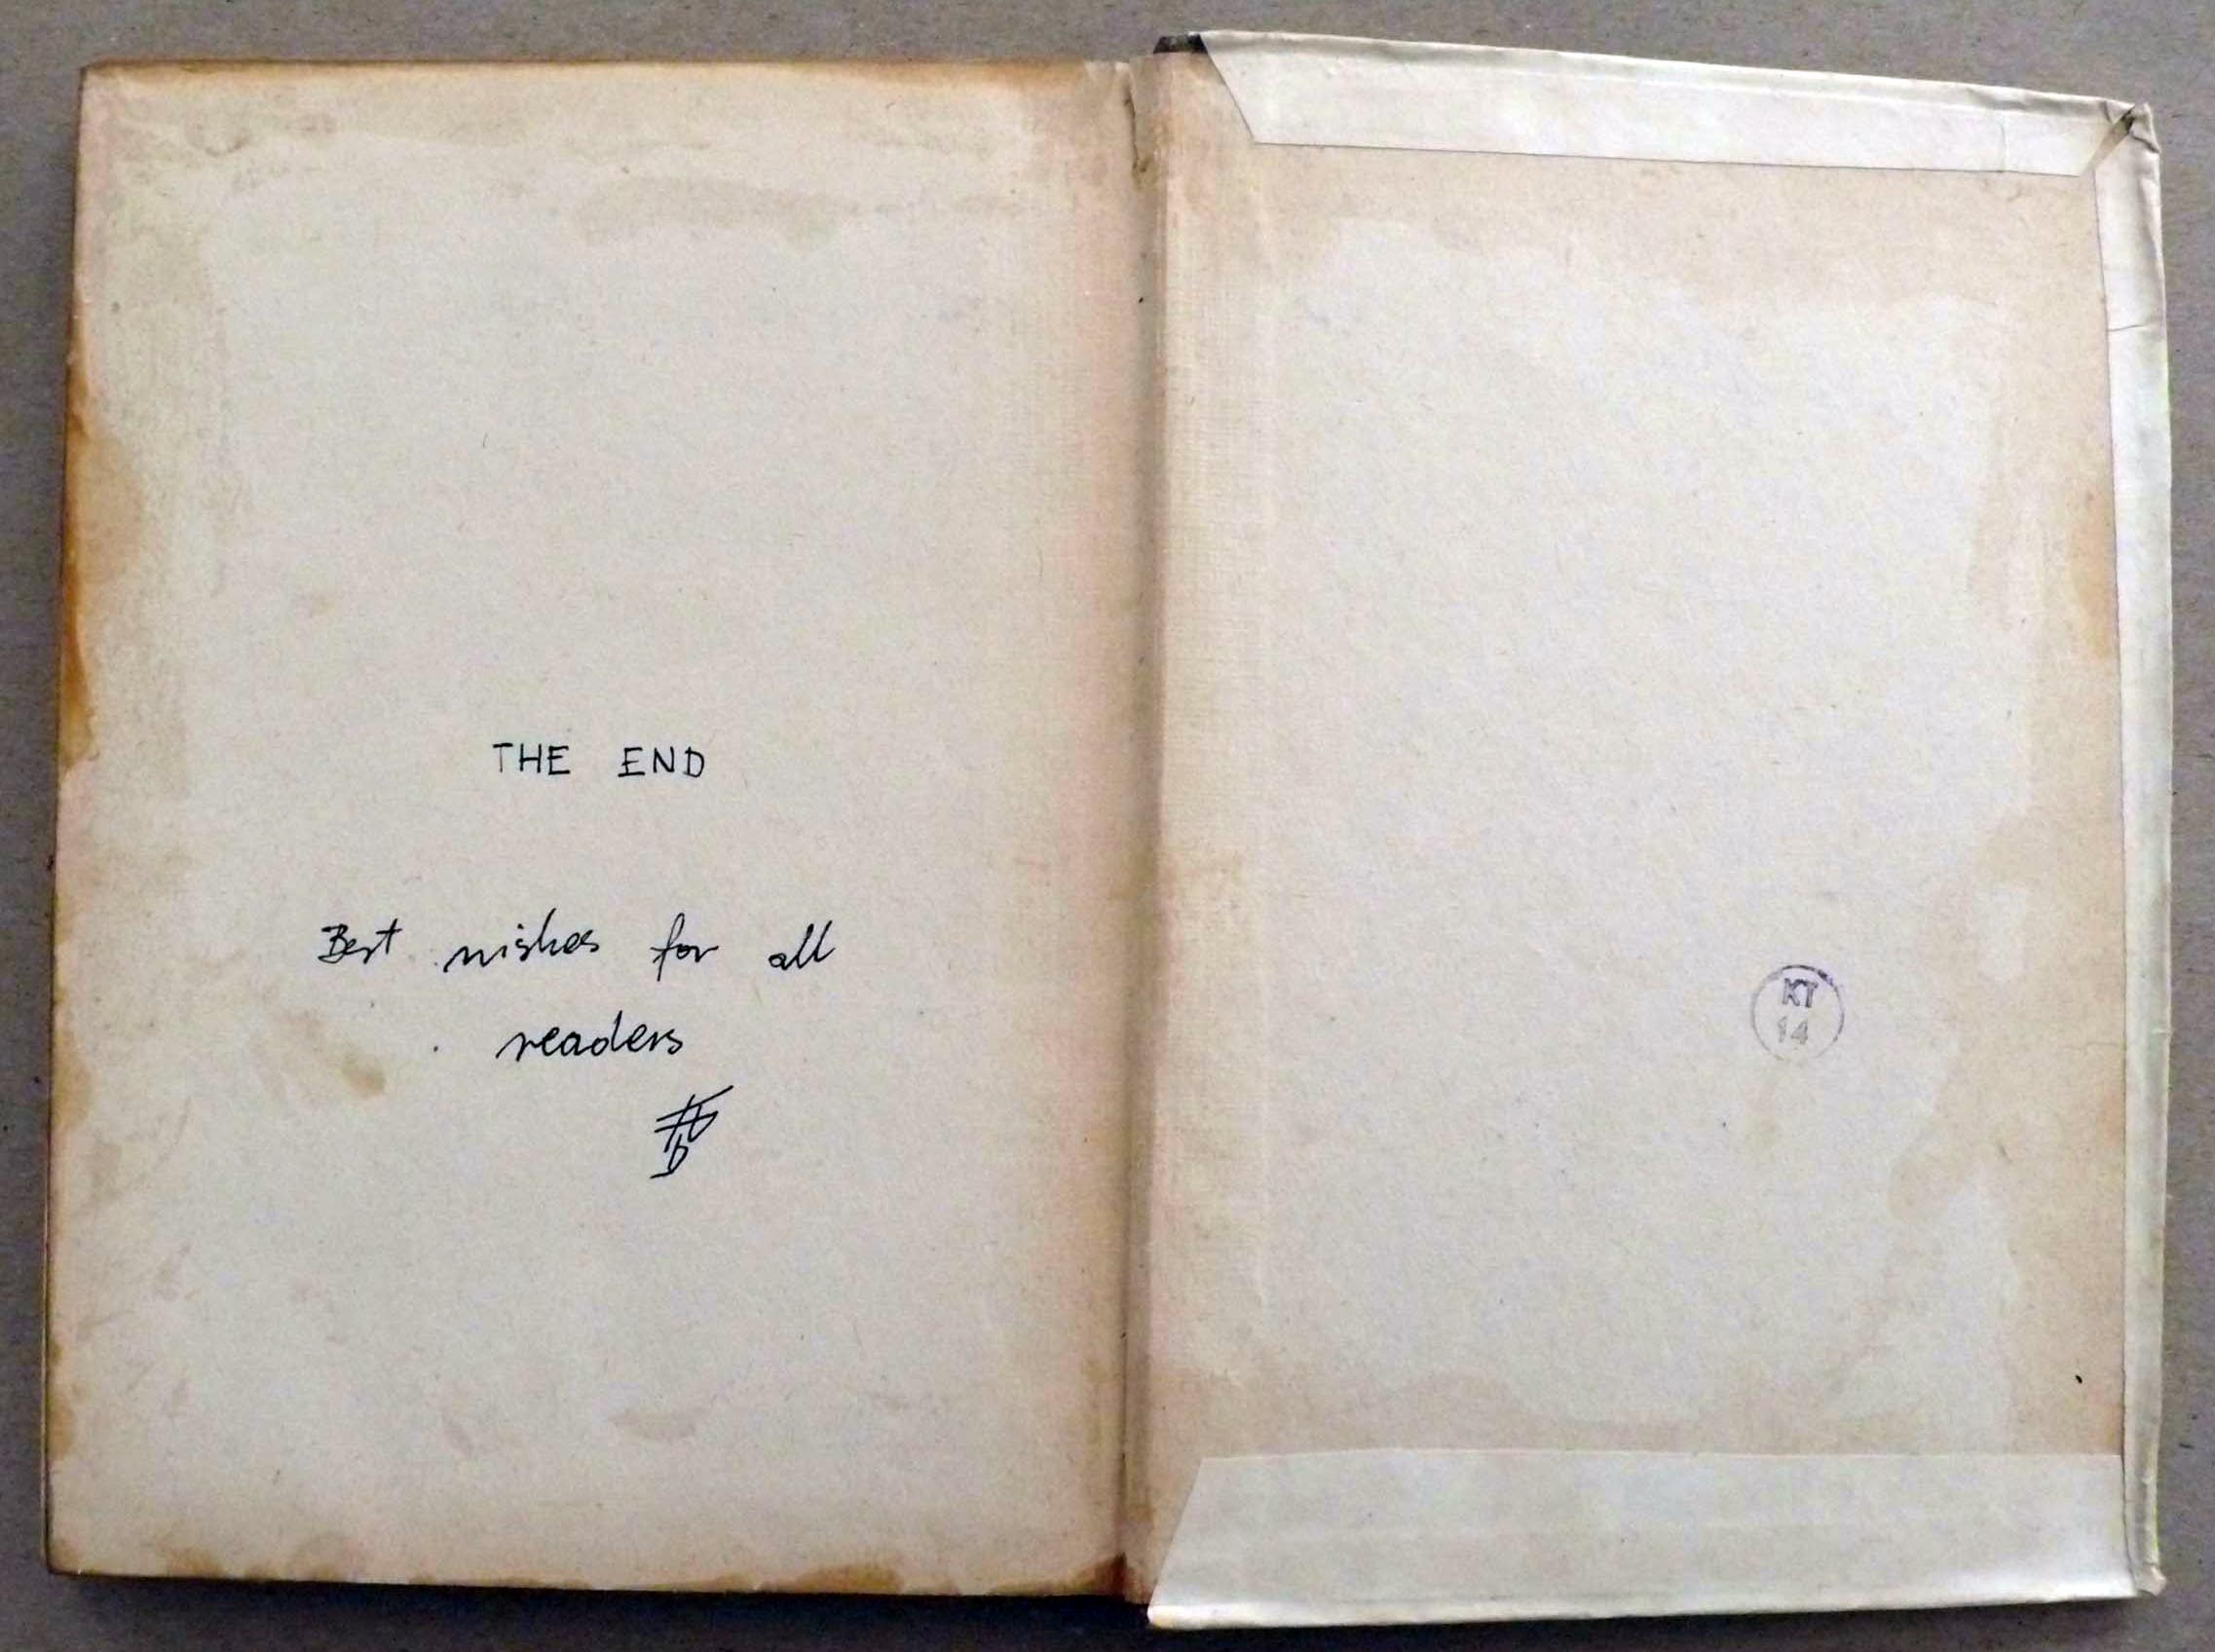 THE END
Best wishes for all
readers
KT
14